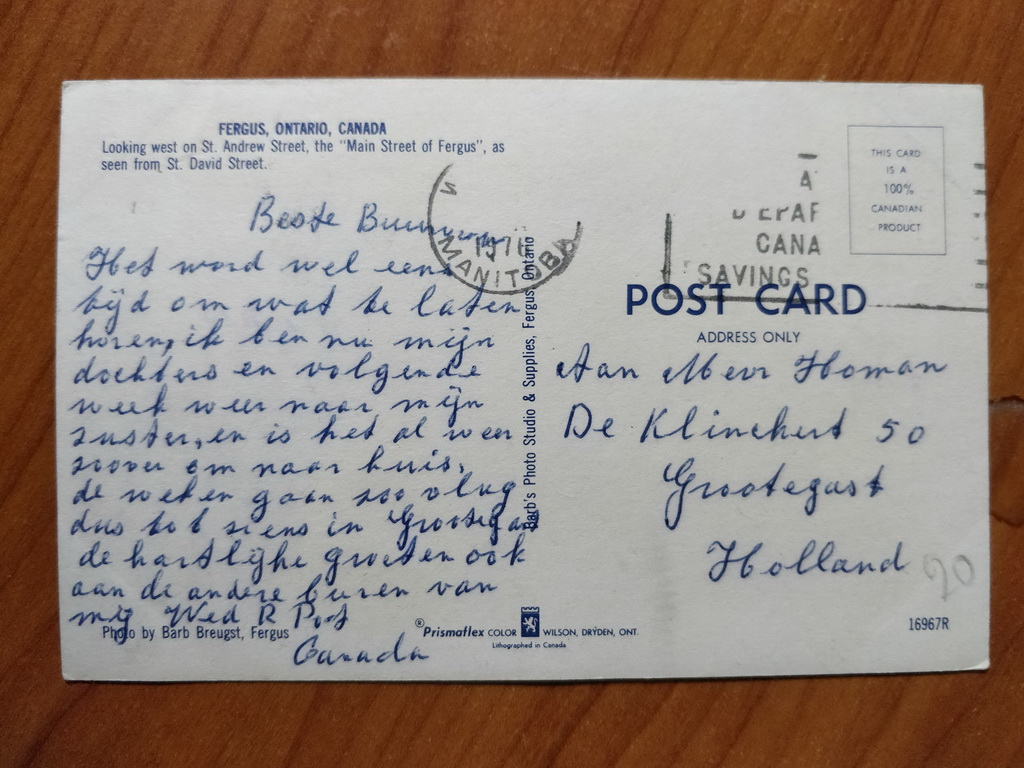 FERGUS, ONTARIO, CANADA
Looking west on St. Andrew Street, the "Main Street of Fergus", as
seen from St. David Street.
Beste Buurvrouw
Het word wel eens
tijd om wat te laten
horen, ik ben nu mijn
dochters en volgende
week weer naar mijn
zuster, en is het al weer
zoover om naar huis,
de weken gaan zoo vlug
dus tot ziens in Grootegast
de hartlijke groeten ook
aan de andere buren van
mij Wed R Pos
Canada
Photo by Barb Breugst, Fergus
S
MANITOBA
Barb's Photo Studio & Supplies, Fergus, Ontario
®Prismaflex COLOR WILSON, DRYDEN, ONT.
Lithographed in Canada
A
DEPAR
CANA
SAVINGS
THIS CARD
IS A
100%
CANADIAN
PRODUCT
POST CARD
ADDRESS ONLY
Aan Mevr Homan
De Klinckert 50
Grootegast
Holland
90
16967R